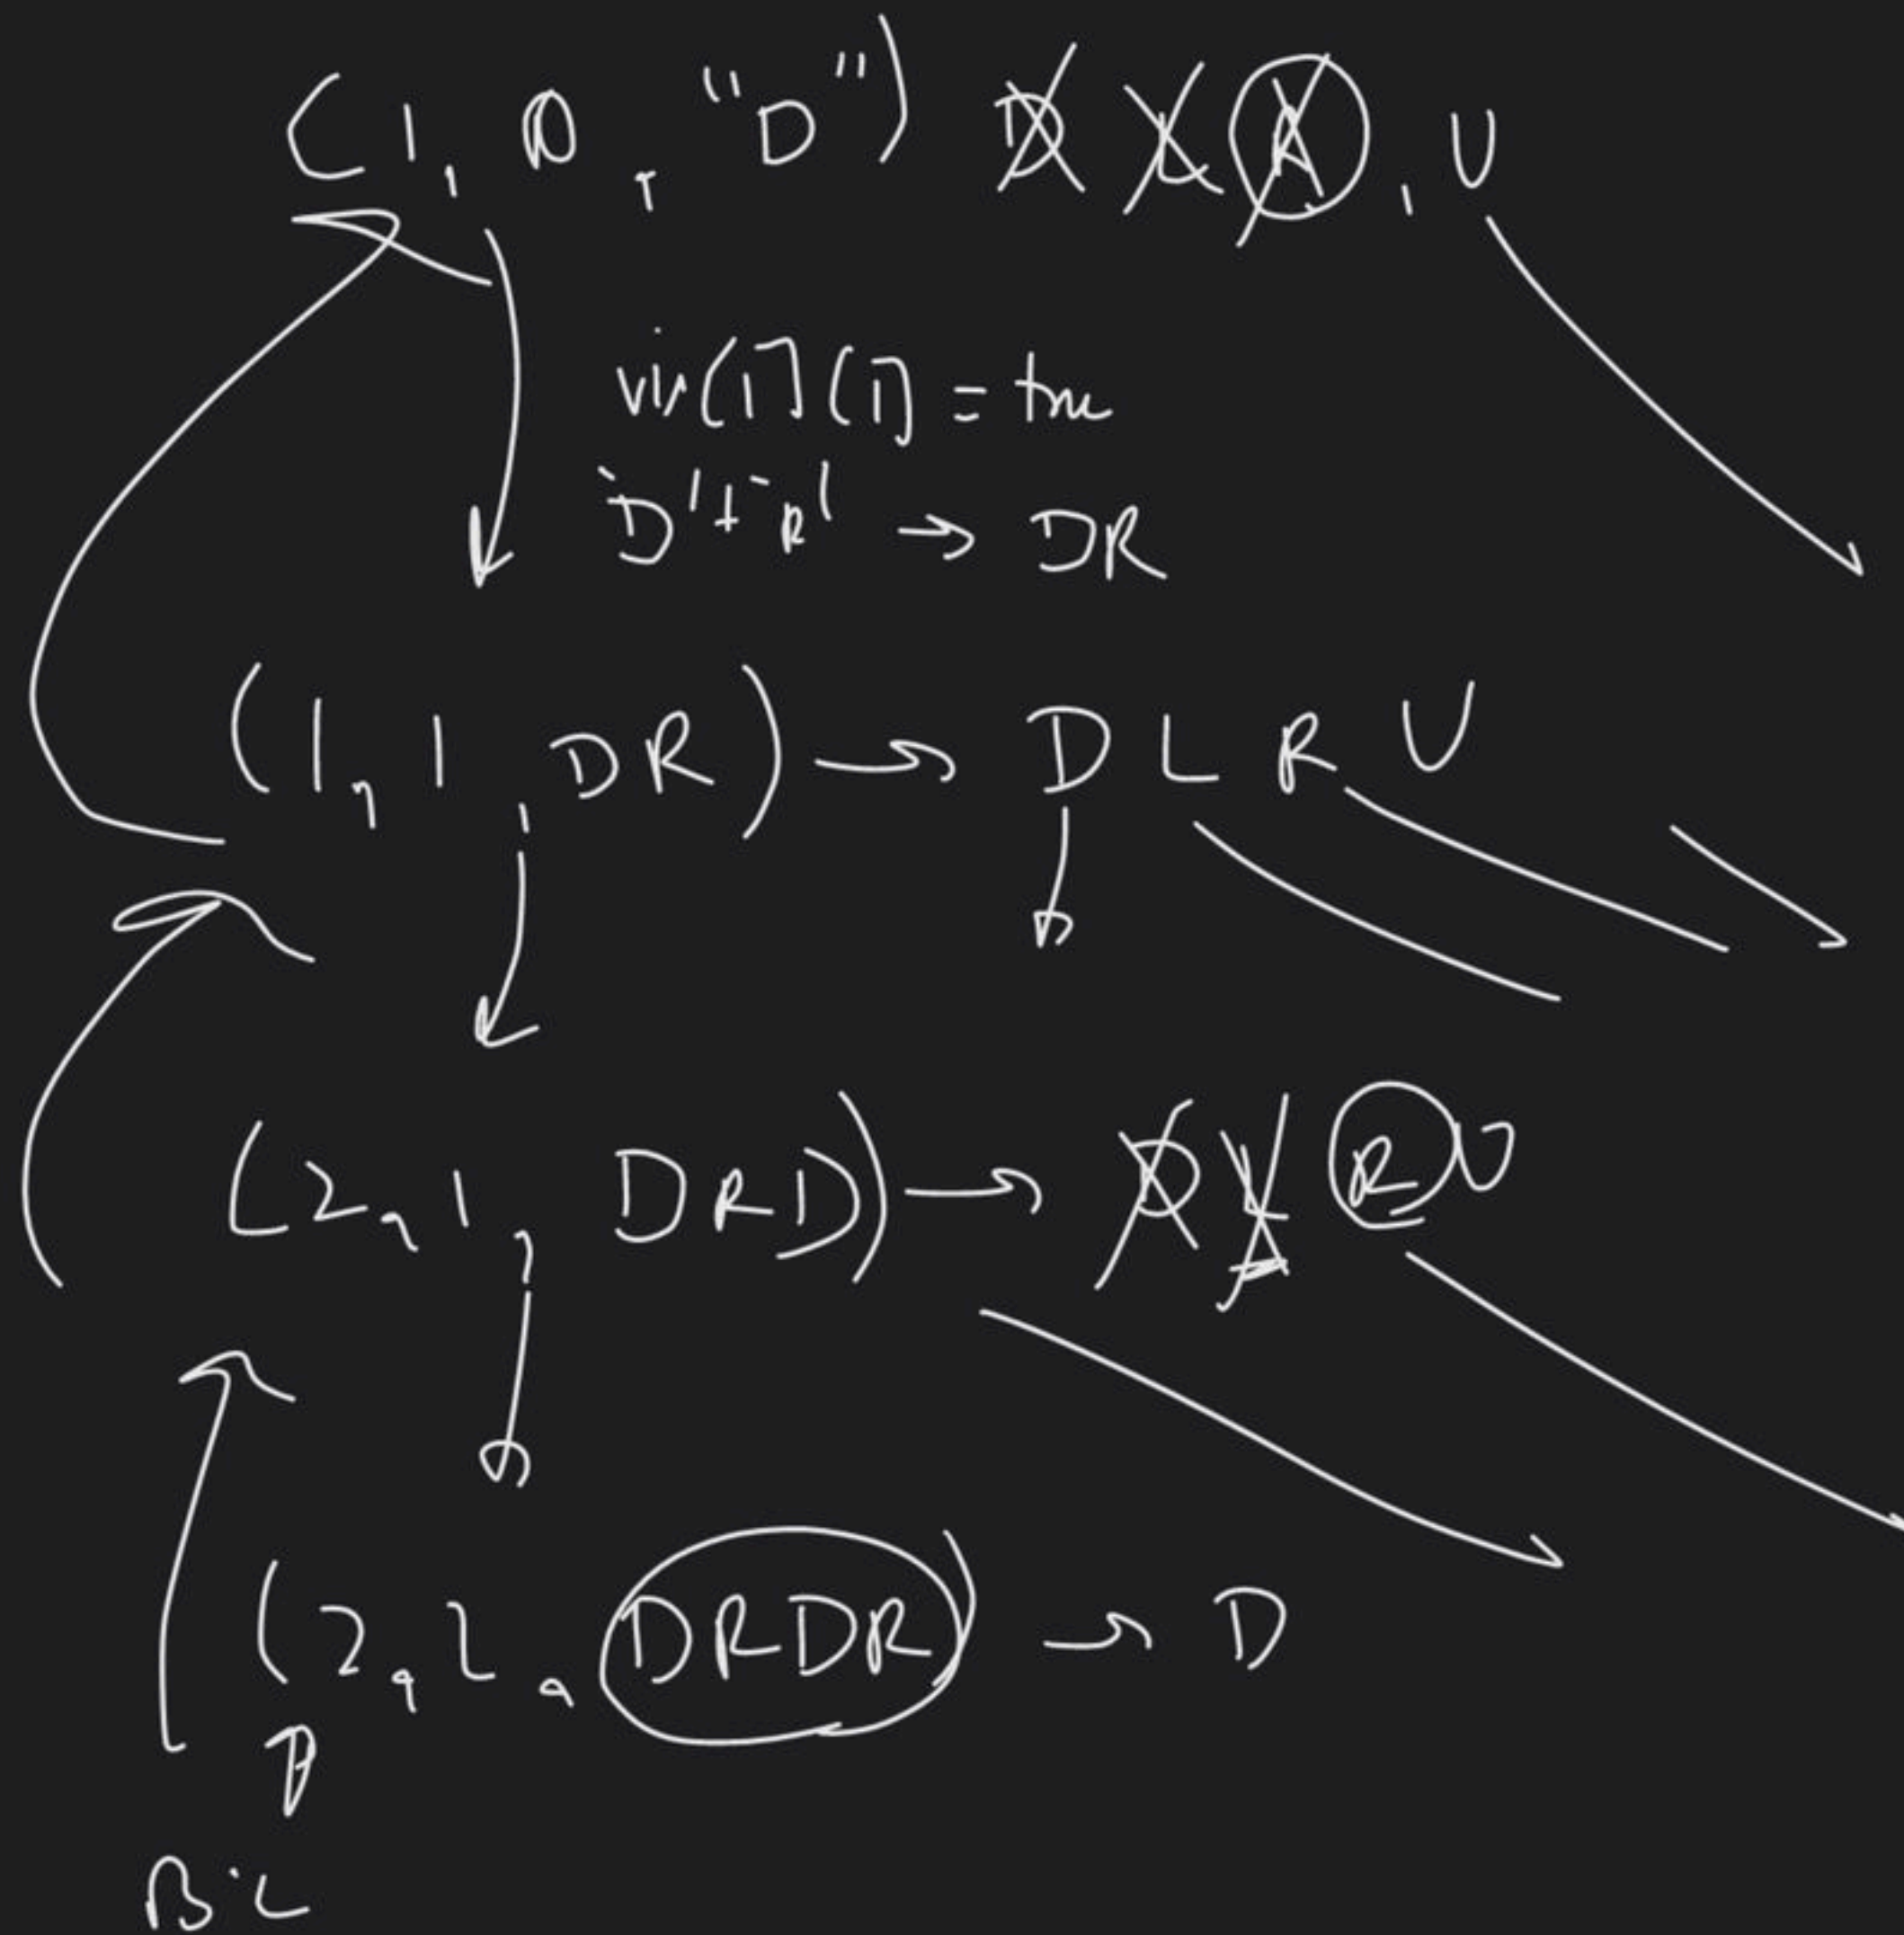 (1, 0, "D") D L R, U
vis[1][1] = true
'D' + 'R' → DR
(1, 1, DR) → D L R U
(2, 1, DRD) → D L R U
(2, 2, DRDR) → D
B.C